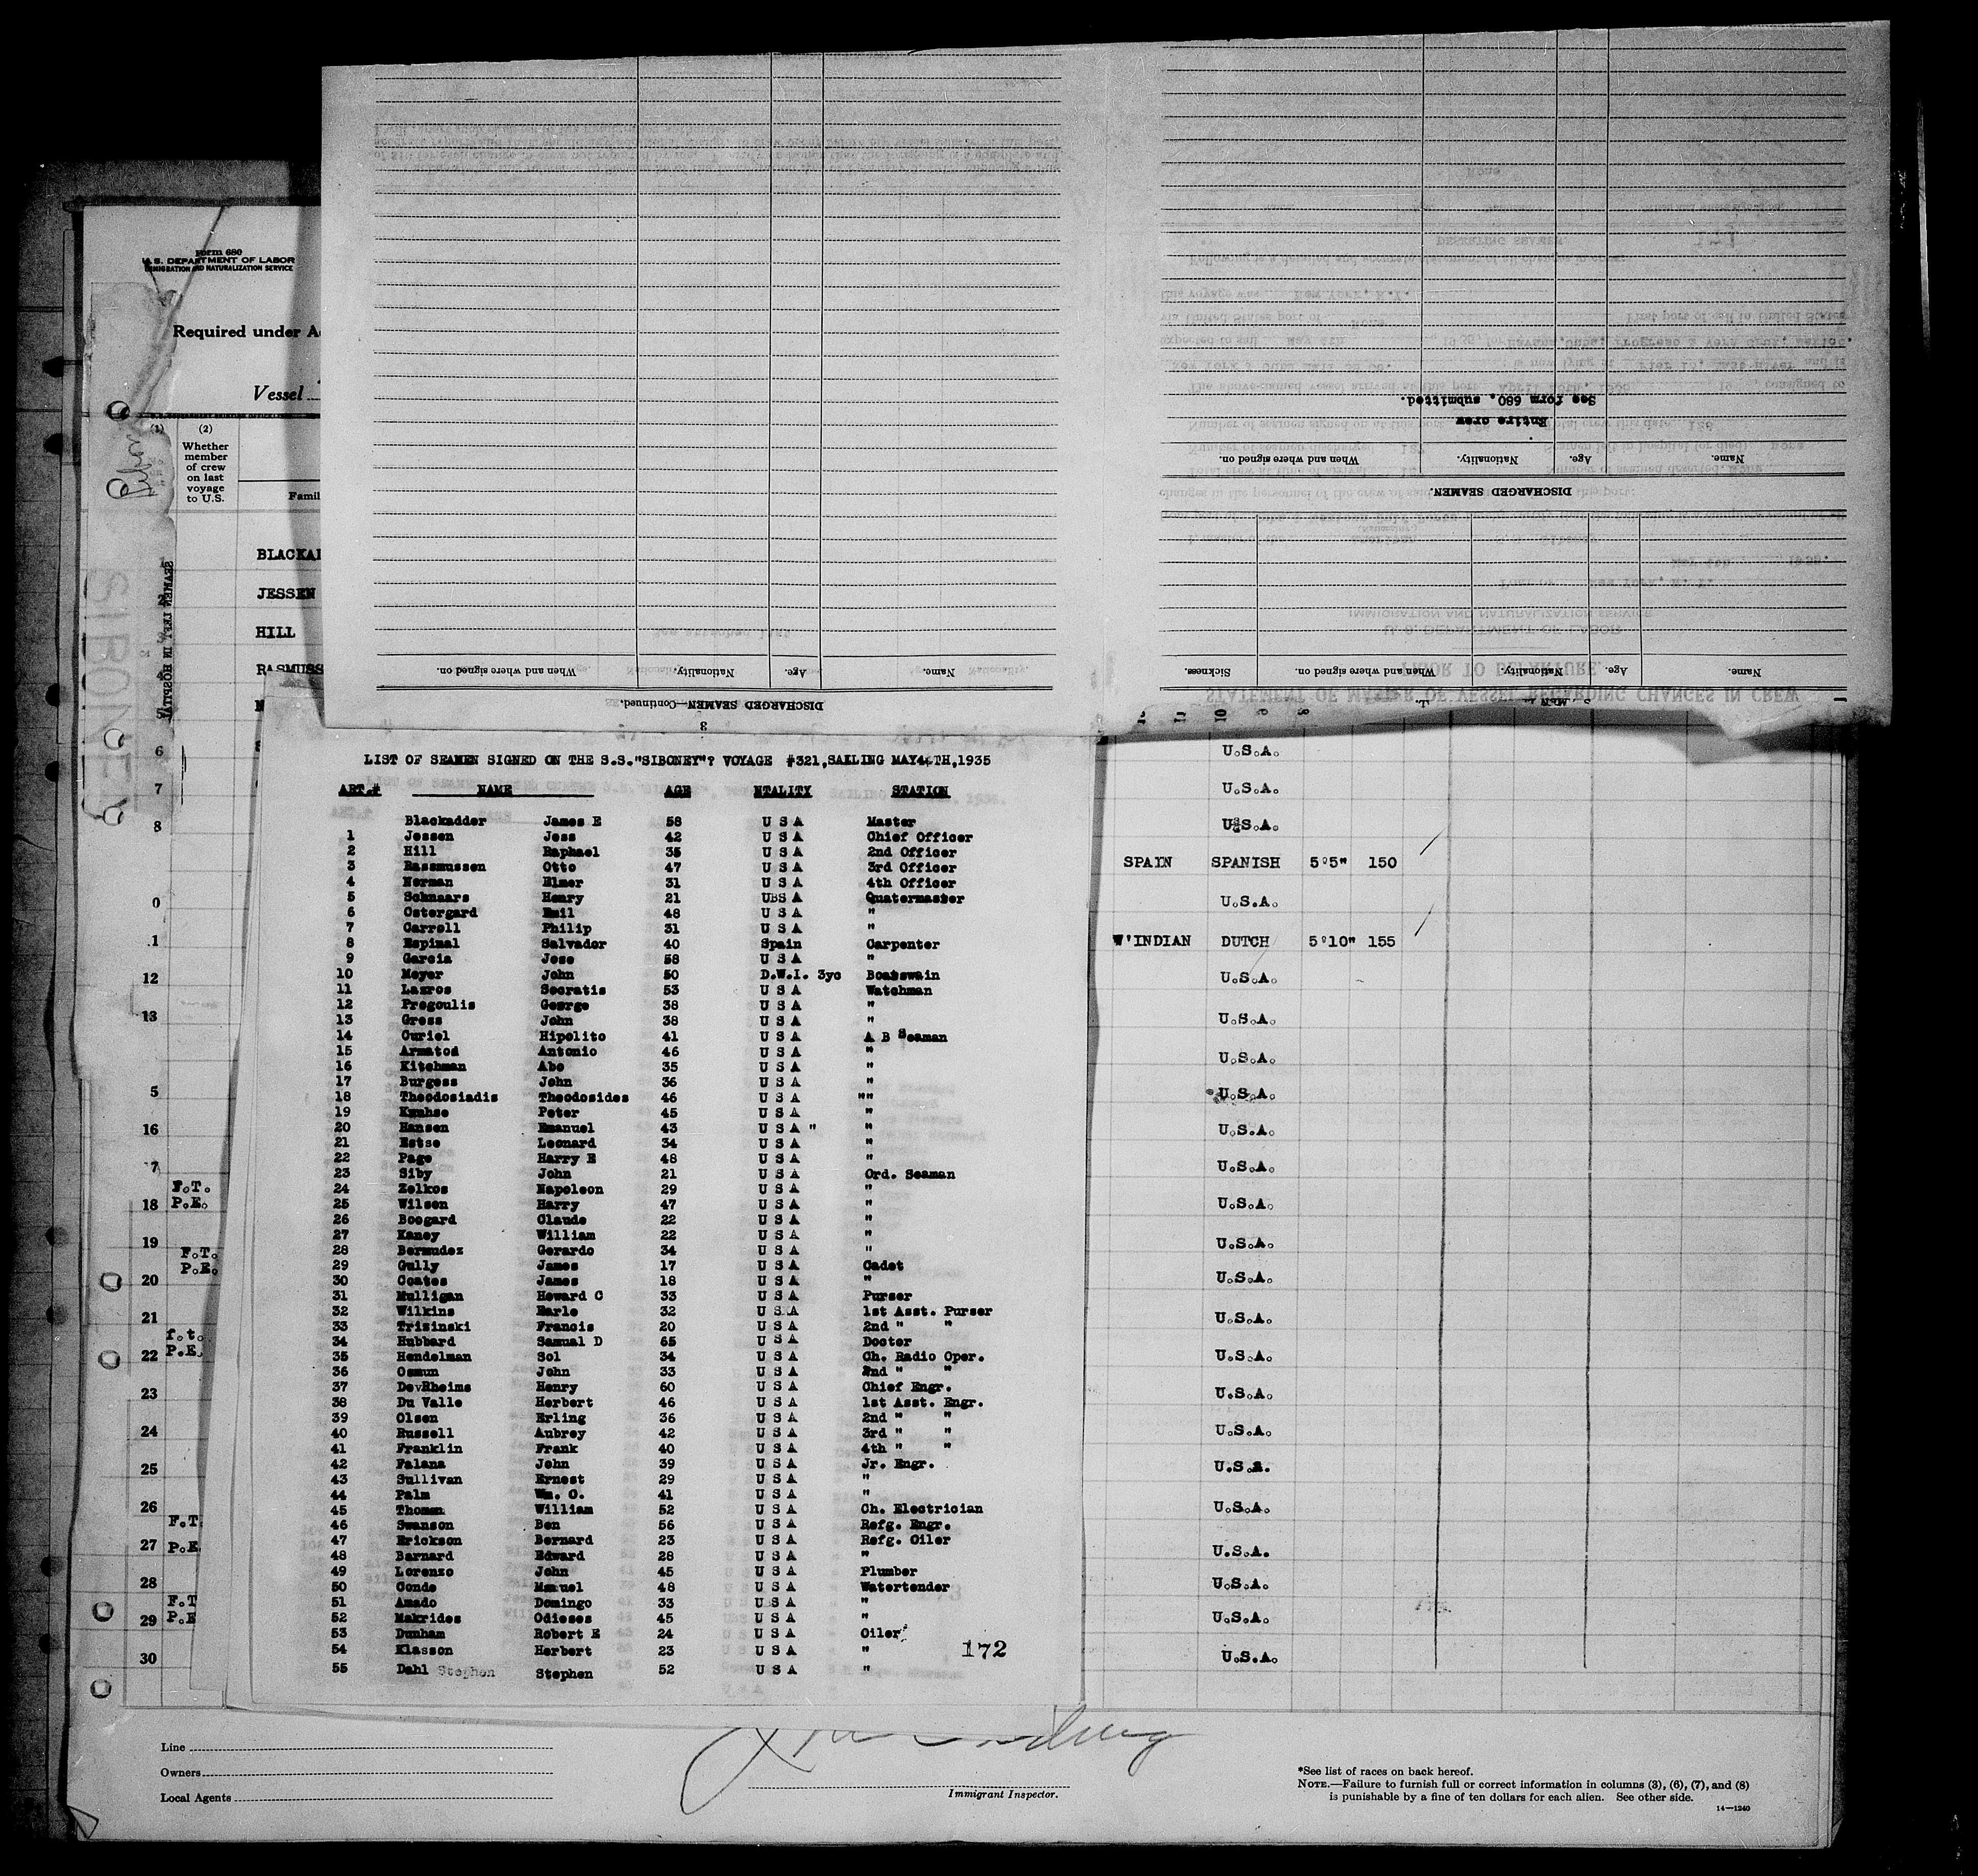 Form 680
U.S. DEPARTMENT OF LABOR
IMMIGRATION AND NATURALIZATION SERVICE
Required under
Vessel
(1) (2)
Whether
member
of crew
on last
voyage
to U.S.
SEAMEN LEFT IN HOSPITAL
SIBONEY
JESSEN
HILL
See form 680. submitted.
Entire crew
Name. Age. Nationality. When and where signed on.
DISCHARGED SEAMEN.
Name. Age. Nationality. When and where signed on. Sickness.
Name. Age. Nationality. When and where signed on.
DISCHARGED SEAMEN—Continued.
3
STATEMENT OF MASTER OF VESSEL REGARDING CHANGES IN CREW
PRIOR TO DEPARTURE.
U. S. DEPARTMENT OF LABOR
IMMIGRATION AND NATURALIZATION SERVICE
LIST OF SEAMEN SIGNED ON THE S.S."SIBONEY"? VOYAGE #321,SAILING MAY4TH,1935
ART.# NAME AGE NTALITY STATION
Blackadder James E 58 U S A Master
1 Jessen Jess 42 U S A Chief Officer
2 Hill Raphael 35 U S A 2nd Officer
3 Rassmussen Otto 47 U S A 3rd Officer
4 Norman Elmer 31 U S A 4th Officer
5 Schnaars Henry 21 UBS A Quatermaster
6 Ostergard Emil 48 U S A "
7 Carroll Philip 31 U S A "
8 Espinal Salvador 40 Spain Carpenter
9 Garcia Jose 58 U S A "
10 Meyer John 50 D.W.I. 3yc Boatswain
11 Lazros Socratis 53 U S A Watchman
12 Pregoulis George 38 U S A "
13 Gross John 38 U S A "
14 Curiel Hipolito 41 U S A A B Seaman
15 Armatos Antonio 46 U S A "
16 Kitchman Abe 35 U S A "
17 Burgess John 36 U S A "
18 Theodosiadis Theodosides 46 U S A ""
19 Kwahse Peter 45 U S A "
20 Hansen Emanuel 43 U S A " "
21 Estse Leonard 34 U S A "
22 Page Harry E 48 U S A "
23 Siby John 21 U S A Ord. Seaman
24 Zelkos Napoleon 29 U S A "
25 Wilson Harry 47 U S A "
26 Boogard Claude 22 U S A "
27 Kaney William 22 U S A "
28 Bermudez Gerardo 34 U S A "
29 Gully James 17 U S A Cadet
30 Coates James 18 U S A "
31 Mulligan Howard C 33 U S A Purser
32 Wilkins Earle 32 U S A 1st Asst. Purser
33 Trizinski Francis 20 U S A 2nd " "
34 Hubbard Samual D 65 U S A Doctor
35 Hendelman Sol 34 U S A Ch. Radio Oper.
36 Osmun John 33 U S A 2nd " "
37 DevRheims Henry 60 U S A Chief Engr.
38 Du Valle Herbert 46 U S A 1st Asst. Engr.
39 Olsen Erling 36 U S A 2nd " "
40 Russell Aubrey 42 U S A 3rd " "
41 Franklin Frank 40 U S A 4th " "
42 Falana John 39 U S A Jr. Engr.
43 Sullivan Ernest 29 U S A "
44 Palm Wm. C. 41 U S A "
45 Thomsn William 52 U S A Ch. Electrician
46 Swanson Ben 56 U S A Refg. Engr.
47 Erickson Bernard 23 U S A Refg. Oiler
48 Barnard Edward 28 U S A "
49 Lorenzo John 45 U S A Plumber
50 Conde Manuel 48 U S A Watertender
51 Amado Domingo 33 U S A "
52 Makrides Odieses 45 U S A "
53 Dunham Robert E 24 U S A Oiler
54 Klasson Herbert 23 U S A "
55 Dahl Stephen Stephen 52 U S A "
172
6 U.S.A.
7 U.S.A.
8 U.S.A.
SPAIN SPANISH 5'5" 150
0 U.S.A.
1 W'INDIAN DUTCH 5'10" 155
12 U.S.A.
13 U.S.A.
U.S.A.
5 U.S.A.
16 U.S.A.
7 U.S.A.
F.T.
18 P.E. U.S.A.
19 U.S.A.
F.T.
P.E.
20 U.S.A.
21 U.S.A.
f.t.
22 P.E. U.S.A.
23 U.S.A.
24 U.S.A.
25 U.S.A.
26 U.S.A.
F.T.
27 P.E U.S.A.
28 U.S.A.
F.T
29 P.E U.S.A.
30 U.S.A.
Line
Owners
Local Agents
Immigrant Inspector.
*See list of races on back hereof.
NOTE.—Failure to furnish full or correct information in columns (3), (6), (7), and (8)
is punishable by a fine of ten dollars for each alien. See other side.
14—1240